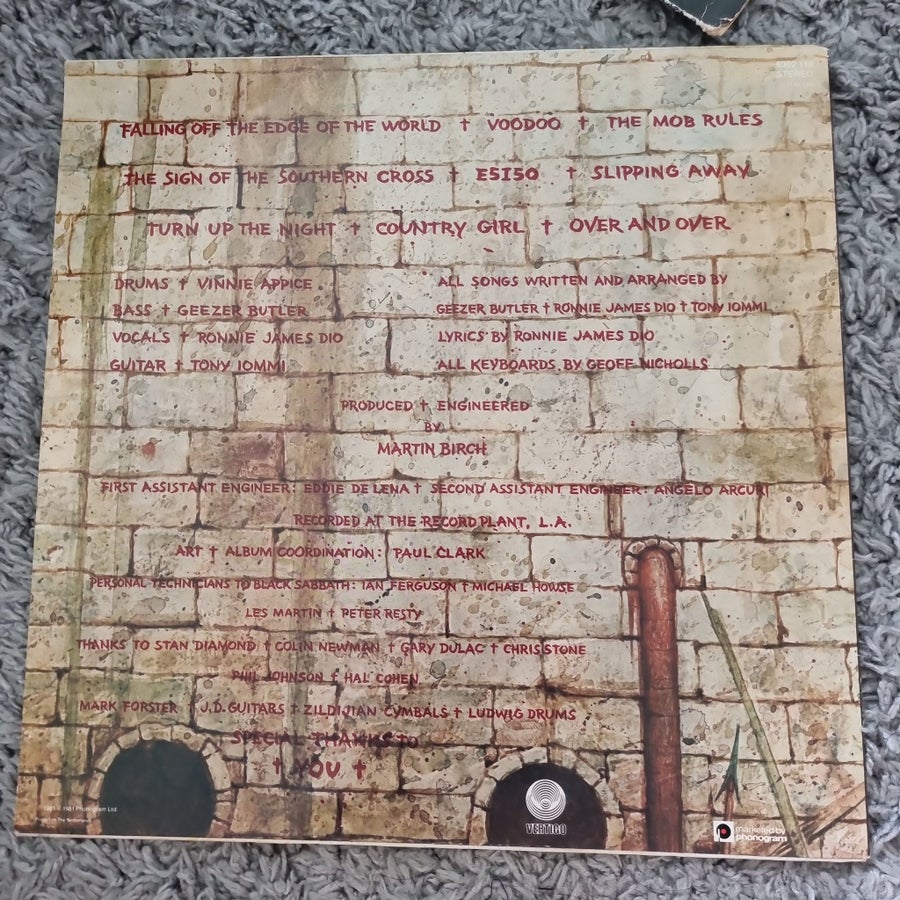 6302 119
STEREO
FALLING OFF THE EDGE OF THE WORLD † VOODOO † THE MOB RULES
THE SIGN OF THE SOUTHERN CROSS † E5150 † SLIPPING AWAY
TURN UP THE NIGHT † COUNTRY GIRL † OVER AND OVER
DRUMS † VINNIE APPICE
BASS † GEEZER BUTLER
VOCALS † RONNIE JAMES DIO
GUITAR † TONY IOMMI
ALL SONGS WRITTEN AND ARRANGED BY
GEEZER BUTLER † RONNIE JAMES DIO † TONY IOMMI
LYRICS BY RONNIE JAMES DIO
ALL KEYBOARDS BY GEOFF NICHOLLS
PRODUCED † ENGINEERED
BY
MARTIN BIRCH
FIRST ASSISTANT ENGINEER: EDDIE DE LENA † SECOND ASSISTANT ENGINEER: ANGELO ARCURI
RECORDED AT THE RECORD PLANT, L.A.
ART † ALBUM COORDINATION: PAUL CLARK
PERSONAL TECHNICIANS TO BLACK SABBATH: IAN FERGUSON † MICHAEL HOWSE
LES MARTIN † PETER RESTY
THANKS TO STAN DIAMOND † COLIN NEWMAN † GARY DULAC † CHRIS STONE
PHIL JOHNSON † HAL COHEN
MARK FORSTER † J.D. GUITARS † ZILDJIAN CYMBALS † LUDWIG DRUMS
SPECIAL THANKS TO
† YOU †
1981 Phonogram Ltd.
Printed in The Netherlands
VERTIGO
marketed by
phonogram